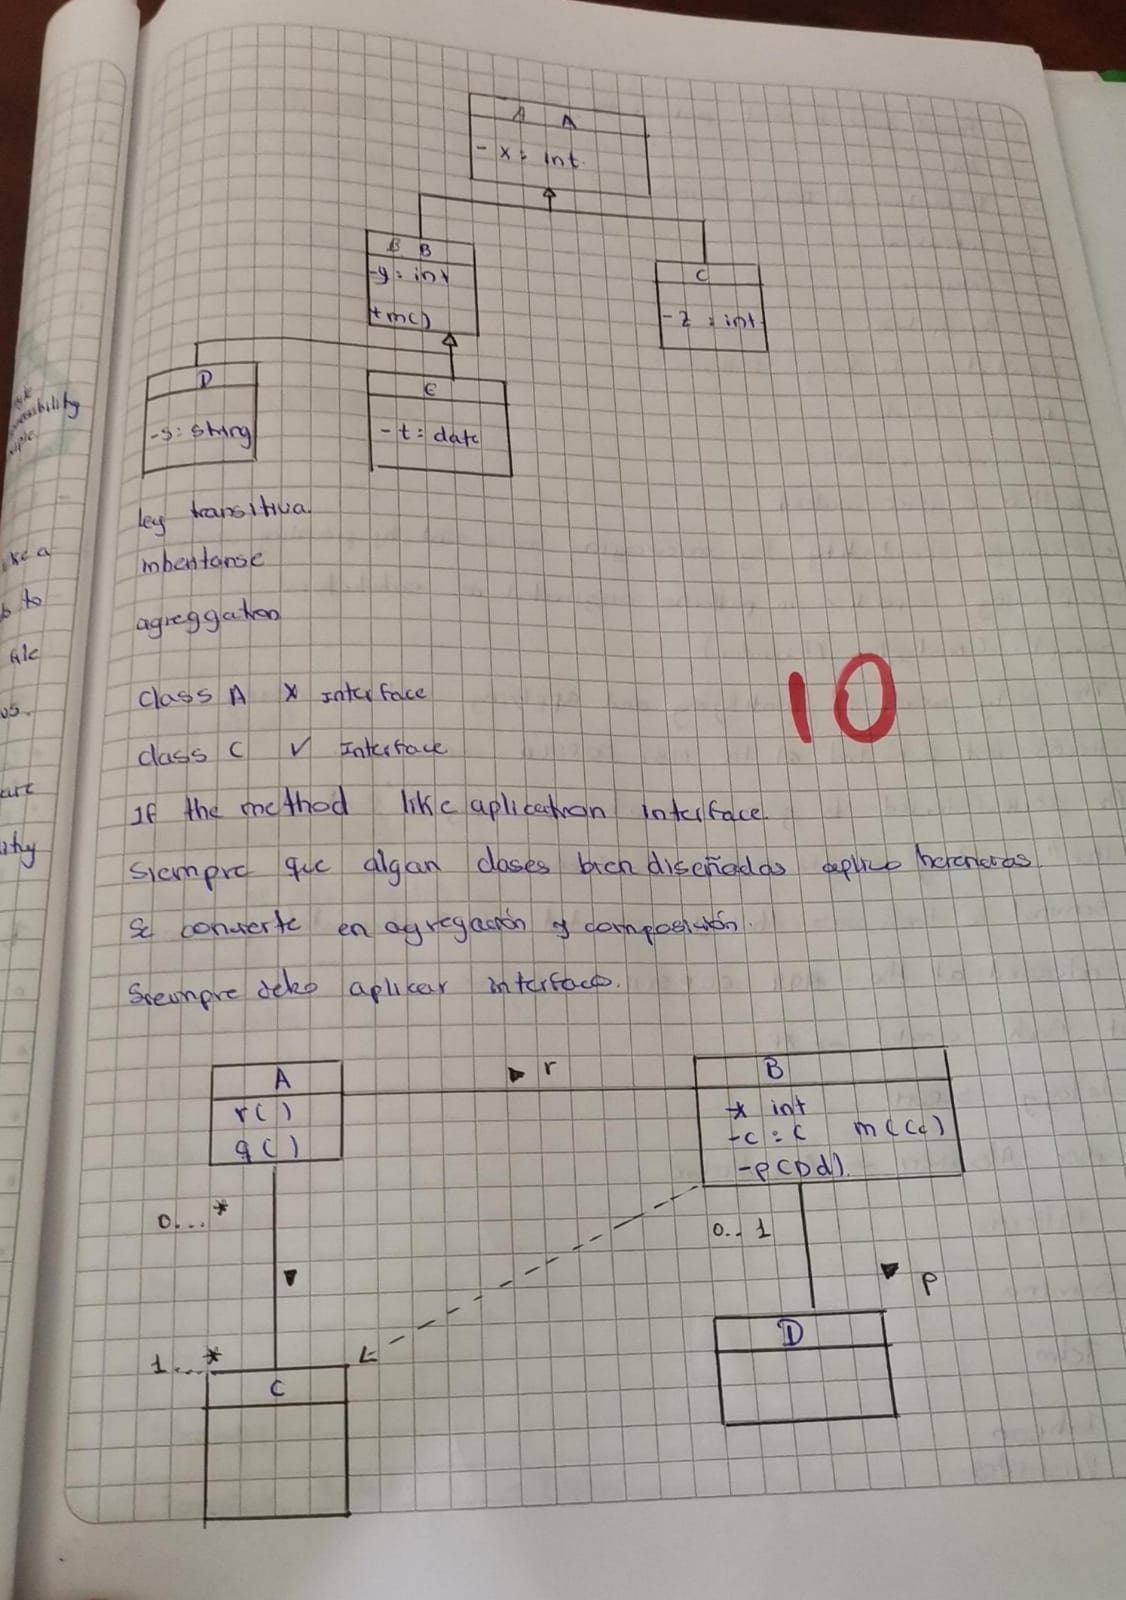 A A
- x: int.
B B
-y: int
+ m()
C
- z : int
D
-s: string
E
- t: date
ley transitiva.
agreggation
10
class A X Interface
class C ✓ Interface
If the method like aplication interface.
siempre que algan clases bien diseñadas aplico
se convierte en agregación y composición.
Siempre debo aplicar interface.
A
r()
q()
▶ r
B
* int
-c : C m(Cc)
-p(Dd).
0...*
0..1
▼ p
1...*
C
D
sibility
ke a
to